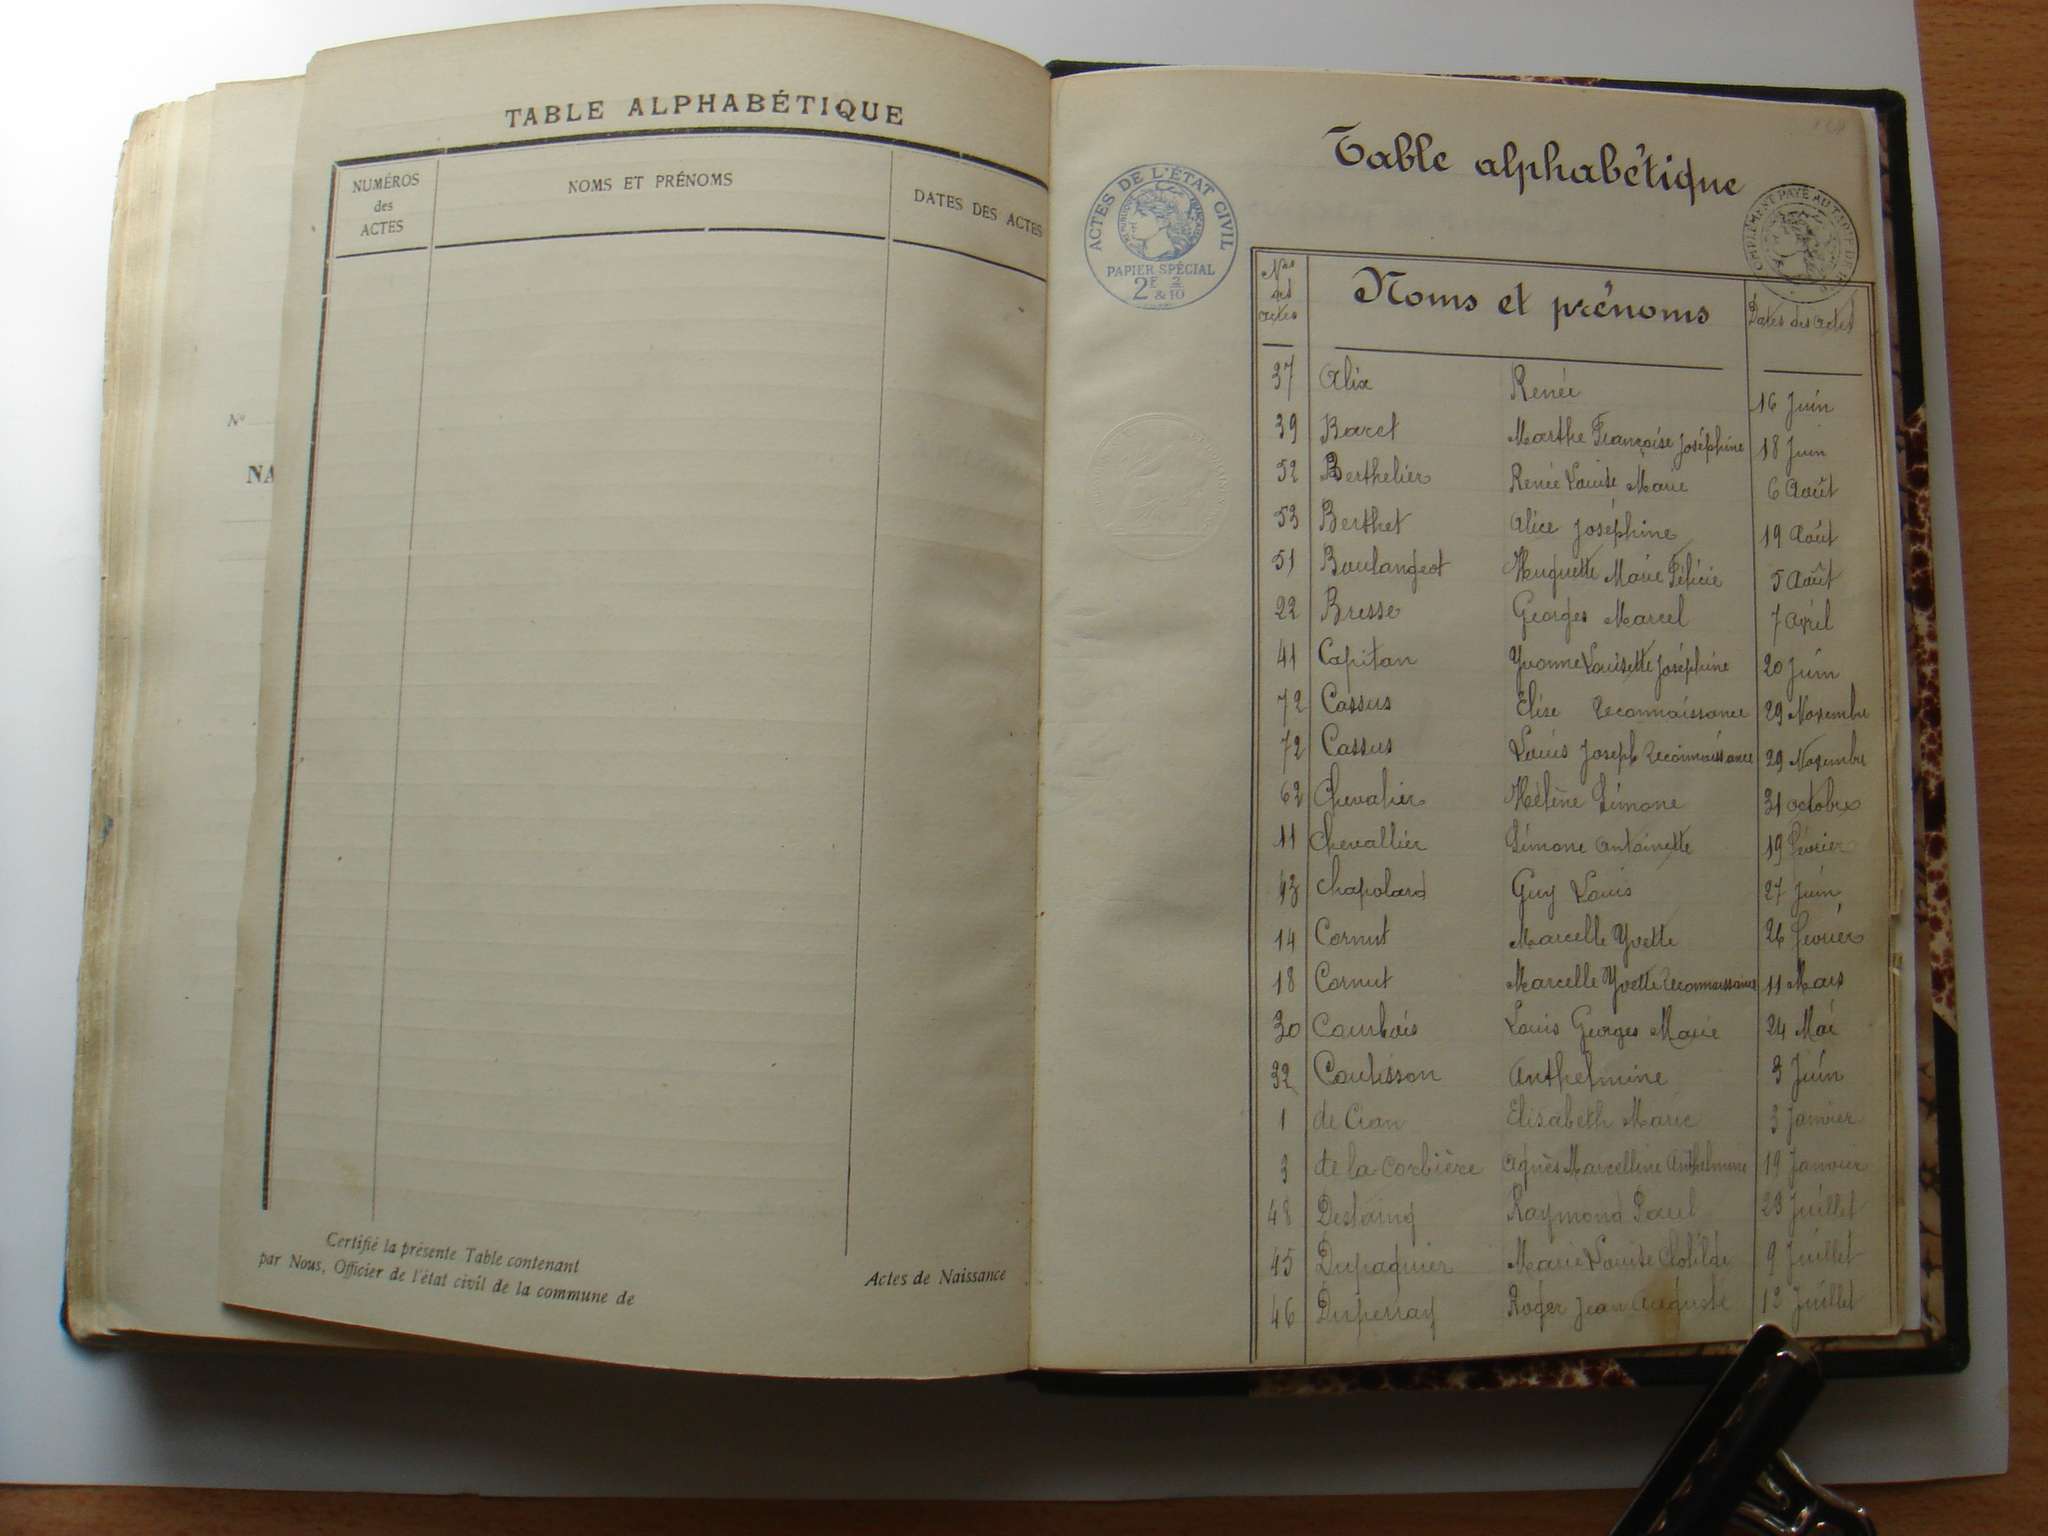 TABLE ALPHABÉTIQUE
NUMÉROS
des
ACTES
NOMS ET PRÉNOMS
DATES DES ACTES
Nº
NA
Certifié la présente Table contenant
Actes de Naissance
par Nous, Officier de l'état civil de la commune de
Table alphabétique
ACTES DE L'ÉTAT CIVIL
RÉPUBLIQUE FRANÇAISE
PAPIER SPÉCIAL
2F 2
& 10
Nos des actes
Noms et prénoms
Dates des actes
37 Alix Renée 16 Juin
39 Baret Marthe Françoise Joséphine 18 Juin
52 Berthelier Renée Louise Marie 6 Août
53 Berthet Alice Joséphine 19 Août
51 Boulangeot Huguette Marie Félicie 5 Août
22 Bresse Georges Marcel 7 Avril
41 Capitan Yvonne Louisette Joséphine 20 Juin
72 Cassus Elise Reconnaissance 29 Novembre
72 Cassus Louis Joseph Reconnaissance 29 Novembre
62 Chevalier Hélène Simone 31 octobre
11 Chevallier Simone Antoinette 19 Février
43 Chapoland Guy Louis 27 Juin
14 Cornut Marcelle Yvette 26 Février
18 Cornut Marcelle Yvette Reconnaissance 11 Mars
30 Courbois Louis Georges Marie 24 Mai
32 Coutisson Anthelmine 3 Juin
1 de Cran Elisabeth Marie 3 Janvier
3 de la Corbière Agnès Marcelline Anthelmine 19 Janvier
48 Destaing Raymond Paul 23 Juillet
45 Dupaquier Marie Louise Clotilde 9 Juillet
46 Duperray Roger Jean Auguste 12 Juillet